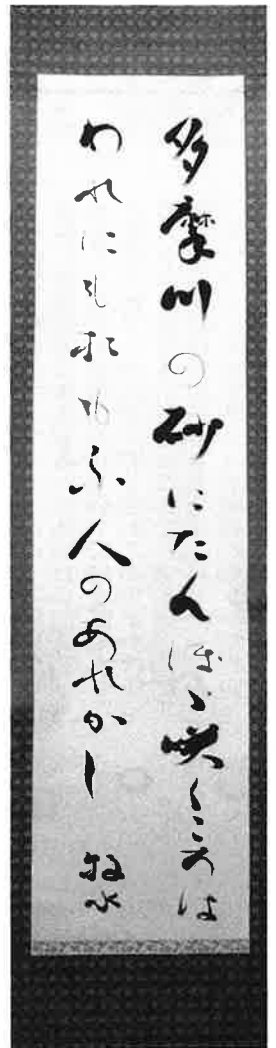 多摩川の砂にたんぽゝ咲くころは
われにもおもふ人のあれかし 牧水